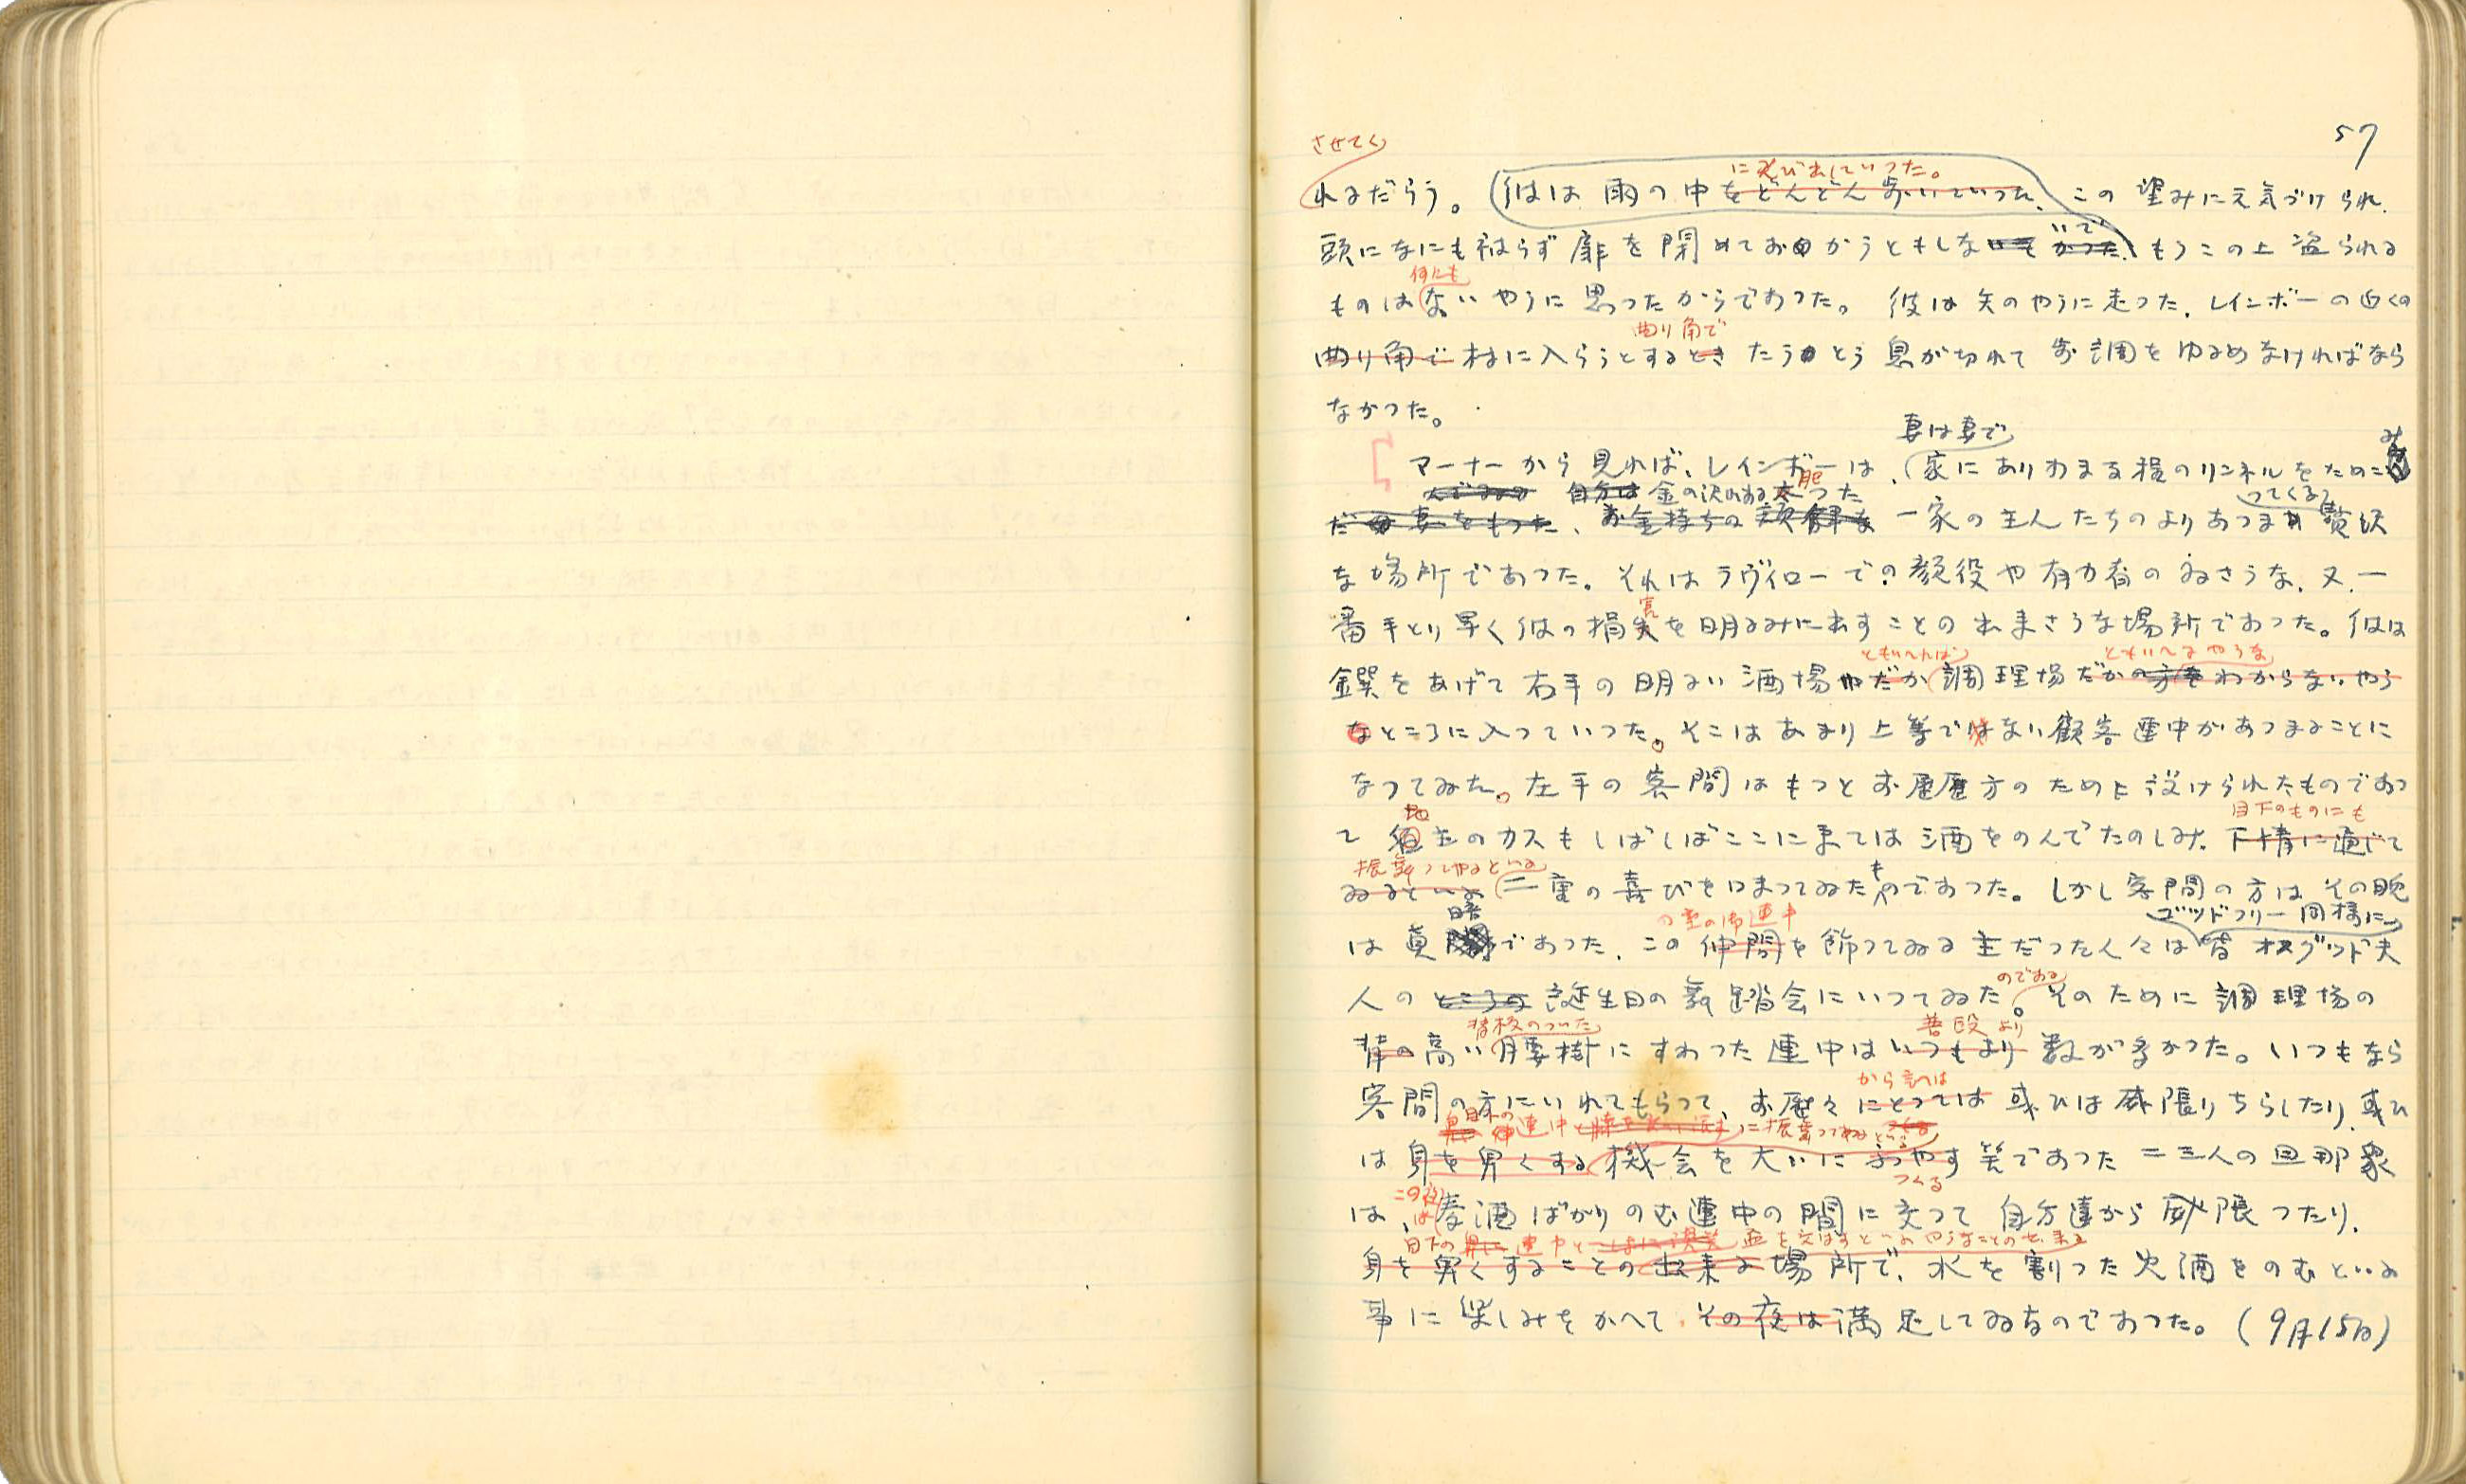 57
させてく
に飛び出していつた。
れるだらう。彼は雨の中をどんどん歩いていつた、この望みに元気づけられ、
いで
頭になにも被らず扉を閉めておかうともしな かつた、もうこの上盗られる
何にも
ものはないやうに思つたからであつた。彼は矢のやうに走つた、レインボーの近くの
曲り角で
曲り角で村に入らうとするときたうとう息が切れて歩調をゆるめなければなら
なかつた。
妻は妻で
マーナーから見れば、レインボーは、家にありあまる程のリンネルをためこ
んでゐる 自分は 金の沢山ある 肥つた
つてくる
だ 妻をもつた、お金持ちの 一家の主人たちのよりあつまる贅沢
な場所であつた。それはラヴイローでの顔役や有力者のゐさうな、又一
害
番手とり早く彼の損失を明るみに出すことの出来さうな場所であつた。彼は
ともいへれば
ともいへるやうな
鐉をあげて右手の明るい酒場だか調理場だか わからないやう
なところに入つていつた。そこはあまり上等でない顧客連中があつまることに
なつてゐた。左手の客間はもつとお歴歴方のために設けられたものであつ
地
目下のものにも
て 主のカスもしばしばここに来ては酒をのんでたのしみ、下情に通じて
振舞つてやるといふ
も
ゐるといふ二重の喜びをはまつてゐたのであつた。しかし客間の方は、その晩
暗
の室の常連中
ゴツドフリー同様に
は真 であつた、この仲間を飾つてゐる主だつた人々は皆オスグツド夫
のである
人の ところの 誕生日の舞踏会にいつてゐた。そのために調理場の
背板のついた
普段より
背の高い腰掛にすわつた連中はいつもより数が多かつた。いつもなら
から言へば
客間の方にいれてもらつて、お歴々にとつては或ひは威張りちらしたり、或ひ
目下の 連中 に振舞つてゐる
は身を卑くする機会を大いにふやす筈であつた二三人の旦那衆
つくる
この夜は
は、麦酒ばかりのむ連中の間に交つて自分達から威張つたり、
目下の 連中と 盃を交はすといふやうなことの出来る
身を卑くすることの出来る場所で、水を割つた火酒をのむといふ
事に楽しみをかへて その夜は満足してゐるのであつた。(9月15日)